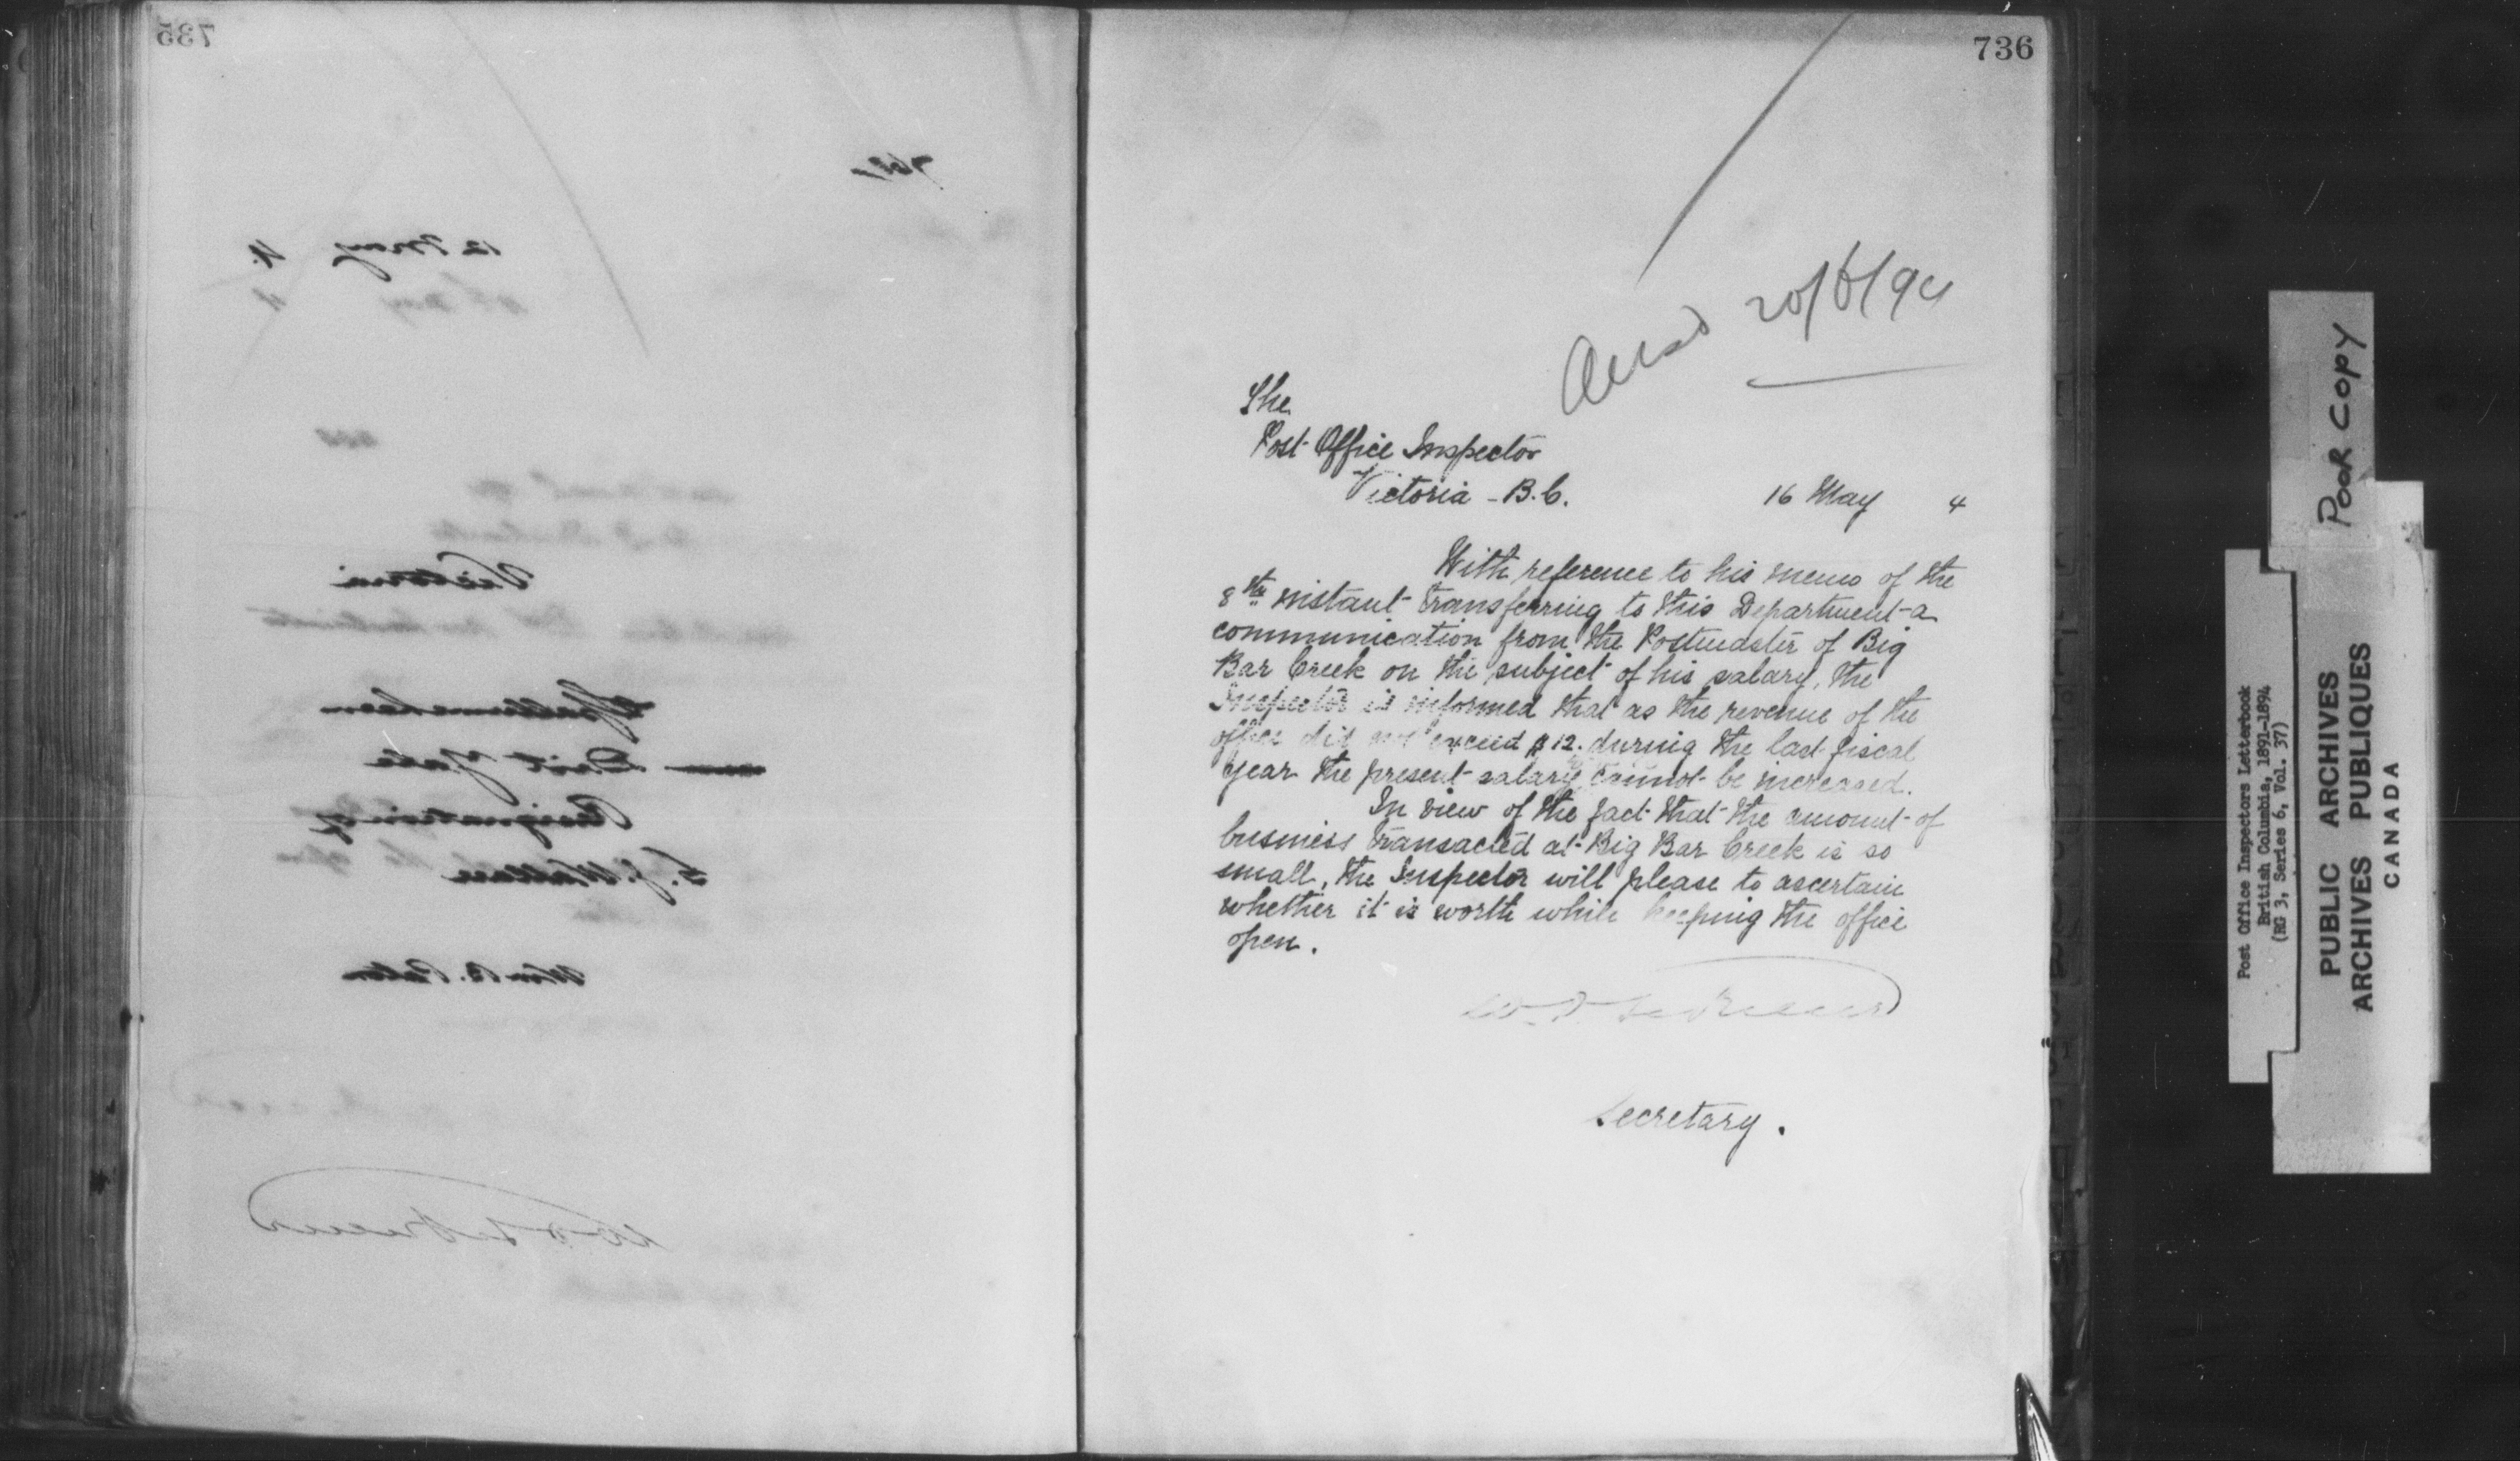 735
12 May 4.
Victoria
Spallumcheen
Dist Yale
Resignation of
Wm R.
736
Ansd 20/6/94
The
Post Office Inspector
Victoria - B.C. 16 May 4
With reference to his memo of the
8th instant transferring to this Department a
communication from the Postmaster of Big
Bar Creek on the subject of his salary, the
Inspector is informed that as the revenue of the
office did not exceed $12. during the last fiscal
year the present salary cannot be increased.
In view of the fact that the amount of
business transacted at Big Bar Creek is so
small, the Inspector will please to ascertain
whether it is worth while keeping the office
open.
Secretary.
POOR COPY
Post Office Inspectors Letterbook
British Columbia, 1891-1894
(RG 3, Series 6, Vol. 37)
PUBLIC ARCHIVES
ARCHIVES PUBLIQUES
CANADA